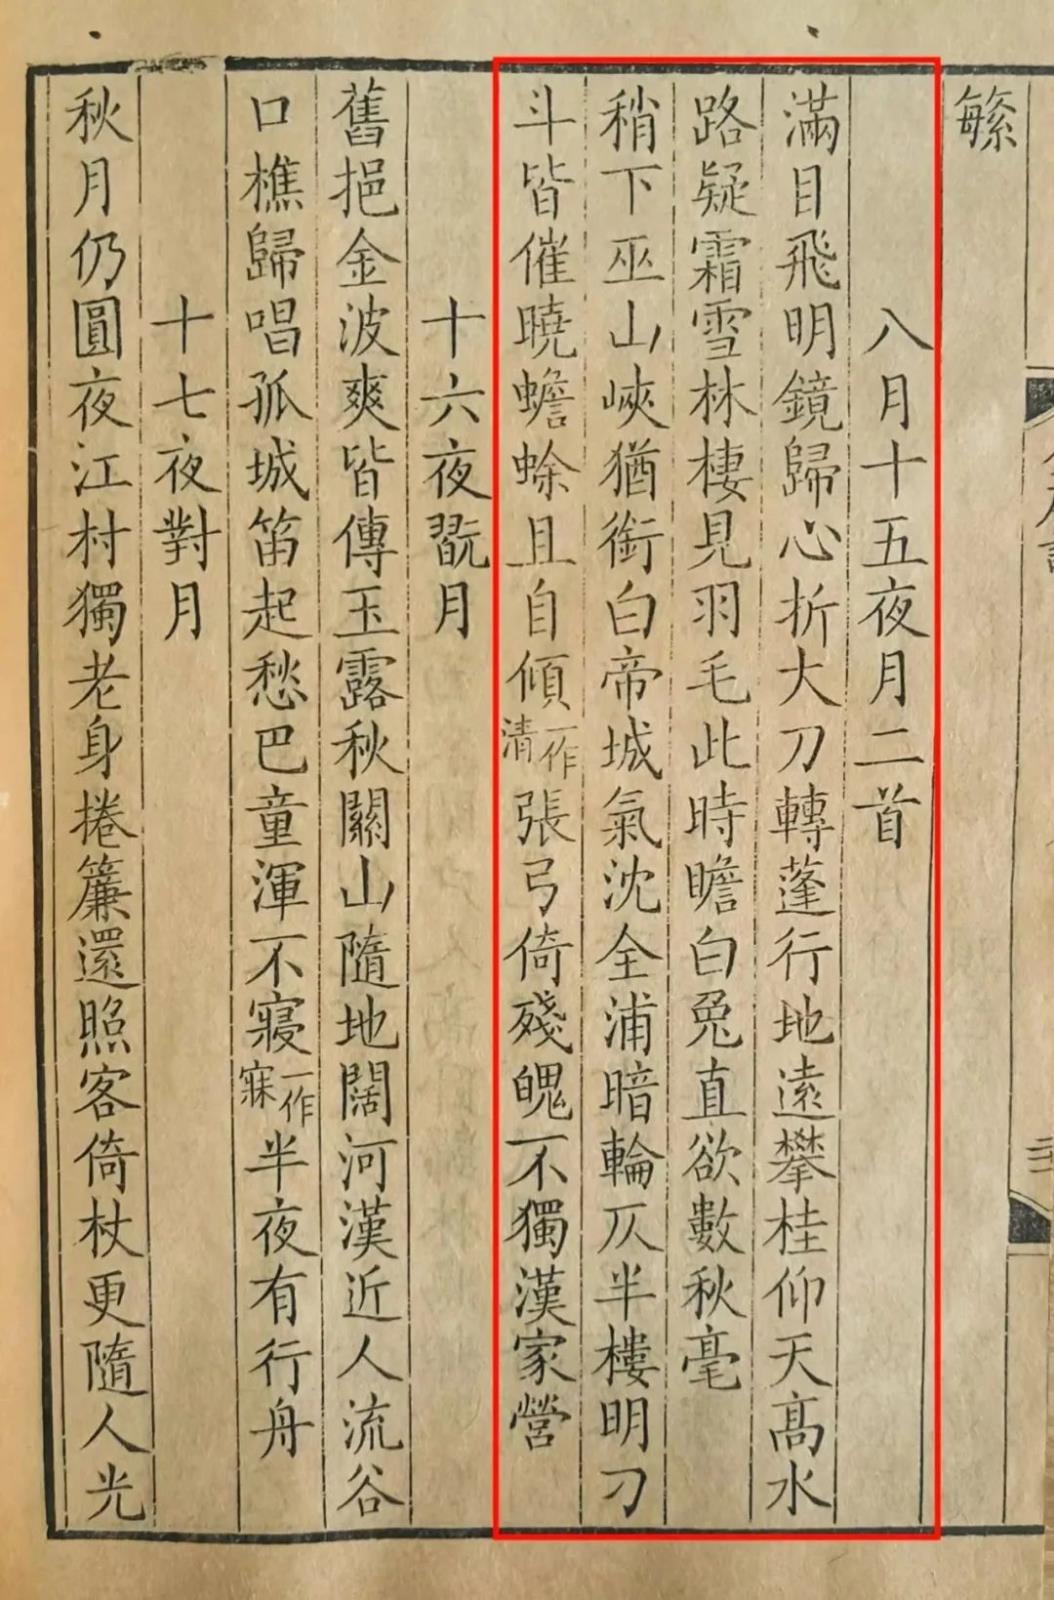 繁
八月十五夜月二首
滿目飛明鏡歸心折大刀轉蓬行地遠攀桂仰天髙水
路疑霜雪林棲見羽毛此時瞻白兔直欲數秋毫
稍下巫山峽猶銜白帝城氣沈全浦暗輪仄半樓明刁
斗皆催曉蟾蜍且自傾一作清張弓倚殘魄不獨漢家營
十六夜翫月
舊挹金波爽皆傳玉露秋關山隨地闊河漢近人流谷
口樵歸唱孤城笛起愁巴童渾不寢一作寐半夜有行舟
十七夜對月
秋月仍圓夜江村獨老身捲簾還照客倚杖更隨人光